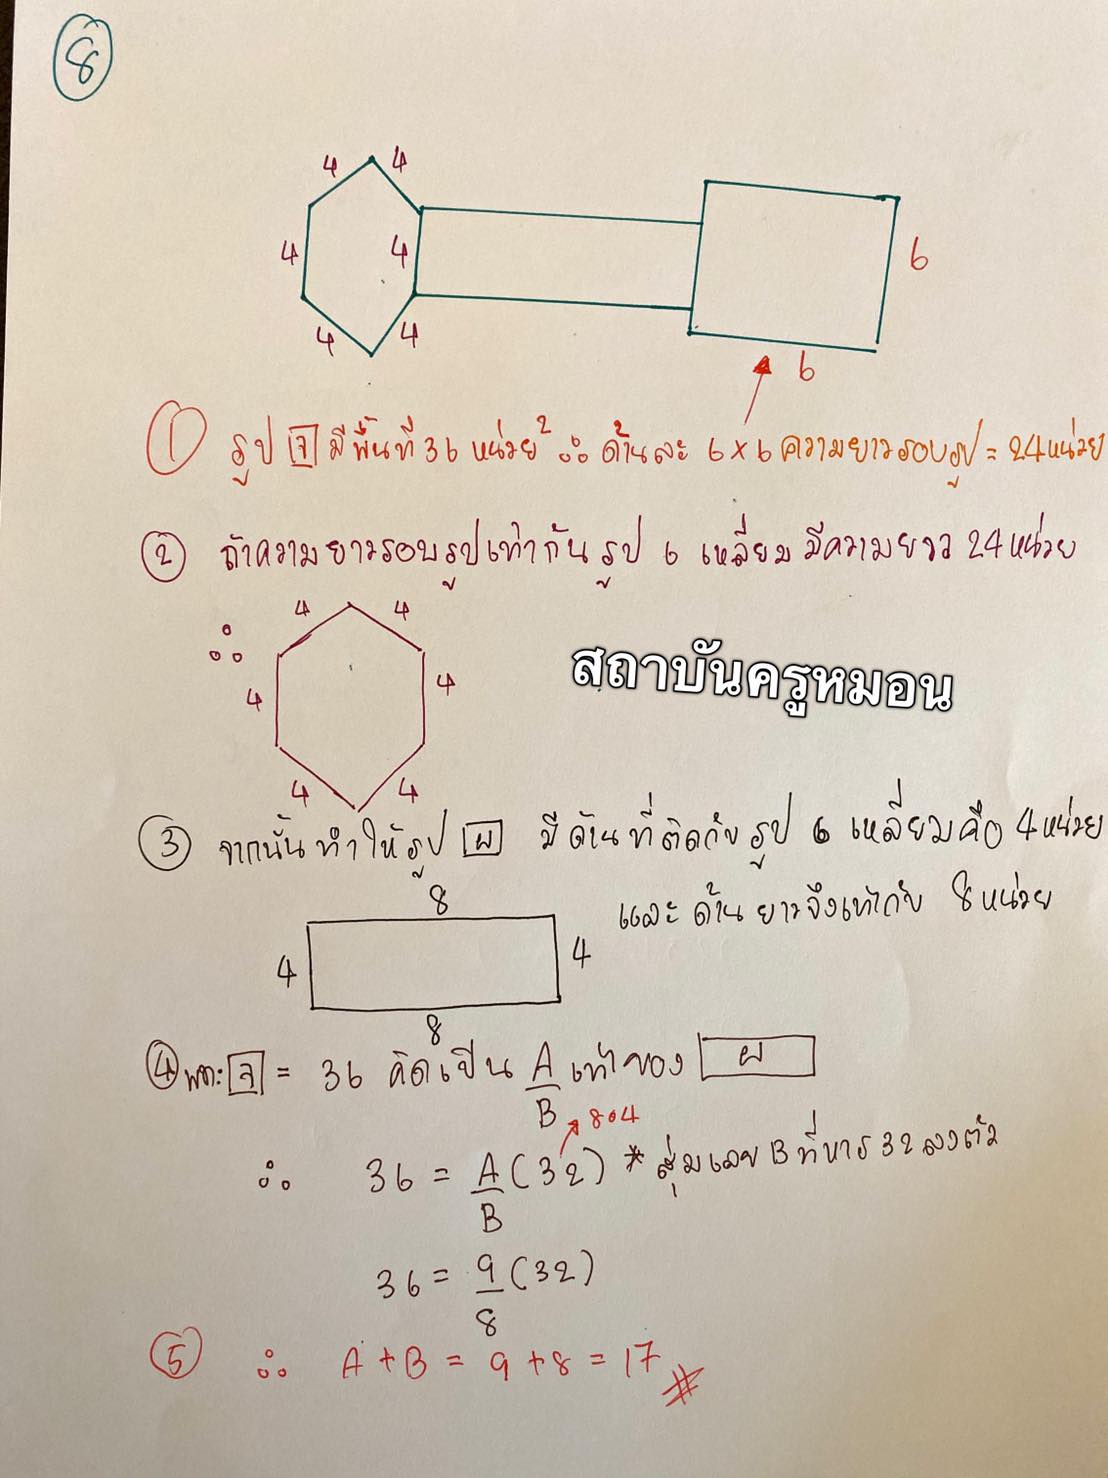 8
4 4
4 4
4 4
6
6
① รูป จ มีพื้นที่ 36 หน่วย² ∴ ด้านละ 6 × 6 ความยาวรอบรูป = 24 หน่วย
② ถ้าความยาวรอบรูปเท่ากัน รูป 6 เหลี่ยม มีความยาว 24 หน่วย
∴
4 4
4 4
4 4
สถาบันครูหมอน
③ จากนั้นทำให้รูป ผ มีด้านที่ติดกับรูป 6 เหลี่ยมคือ 4 หน่วย
และด้านยาวจึงเท่ากับ 8 หน่วย
8
4 4
8
④ เพราะ จ = 36 คิดเป็น A/B เท่าของ ผ
8•4
∴ 36 = A/B (32) * สุ่มเลข B ที่หาร 32 ลงตัว
36 = 9/8 (32)
⑤ ∴ A + B = 9 + 8 = 17 #